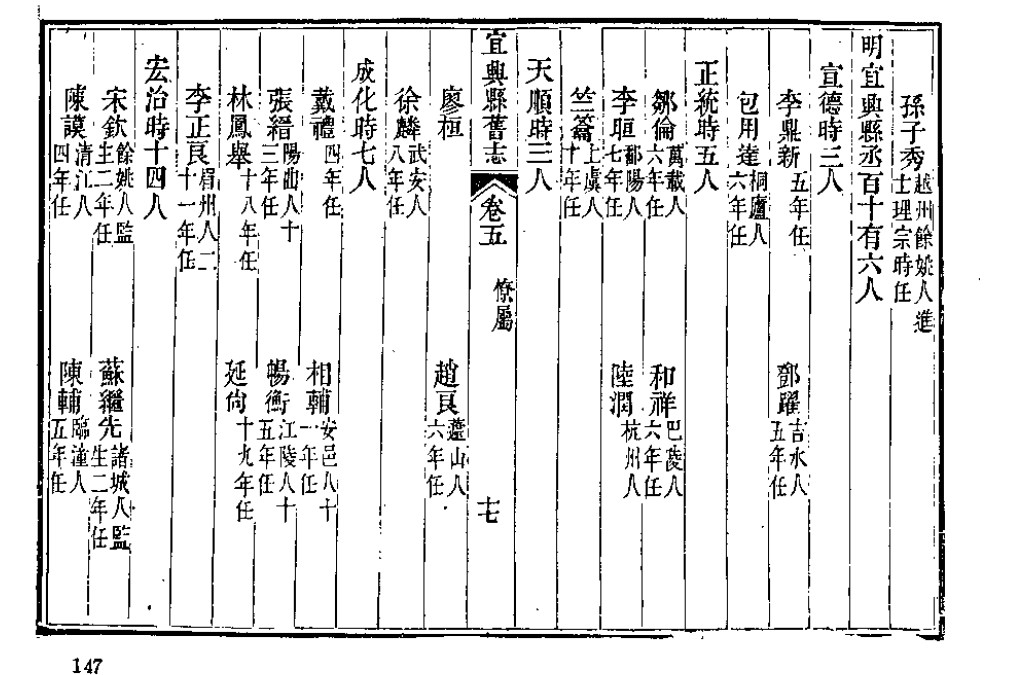 孫子秀越州餘姚人進士理宗時任
明宜興縣丞百十有六人
宣德時三人
李鼎新五年任
鄧躍吉水人五年任
包用達桐廬人六年任
正統時五人
鄒倫萬載人六年任
和祥巴陵人六年任
李恒鄱陽人七年任
陸潤杭州人
竺籥上虞人十年任
天順時三人
宜興縣舊志
卷五
僚屬
七
廖桓
趙艮蘆山人六年任
徐麟武安人八年任
成化時七人
戴禮四年任
相輔安邑人十一年任
張縉陽曲人十三年任
暢衡江陵人十五年任
林鳳舉十八年任
延尙十九年任
李正艮眉州人二十一年任
宏治時十四人
宋欽餘姚人監生二年任
蘇繼先諸城人監生二年任
陳謨清江人四年任
陳輔臨潼人五年任
147